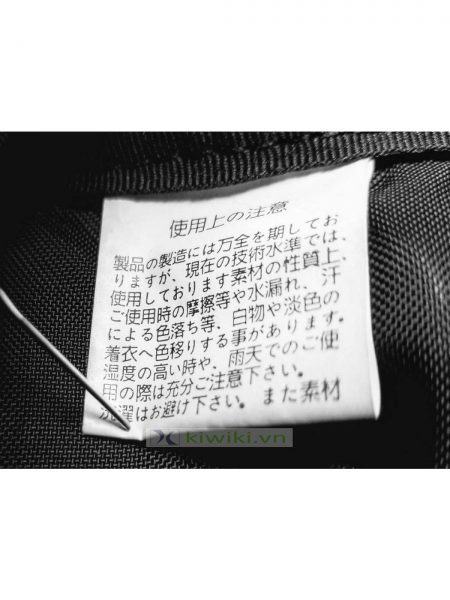 使用上の注意
製品の製造には万全を期してお
りますが、現在の技術水準では、
使用しております素材の性質上、
ご使用時の摩擦等や水漏れ、汗
による色落ち等、白物や淡色の
着衣へ色移りする事があります。
湿度の高い時や、雨天でのご使
用の際は充分ご注意下さい。
洗濯はお避け下さい。また素材
kiwiki.vn